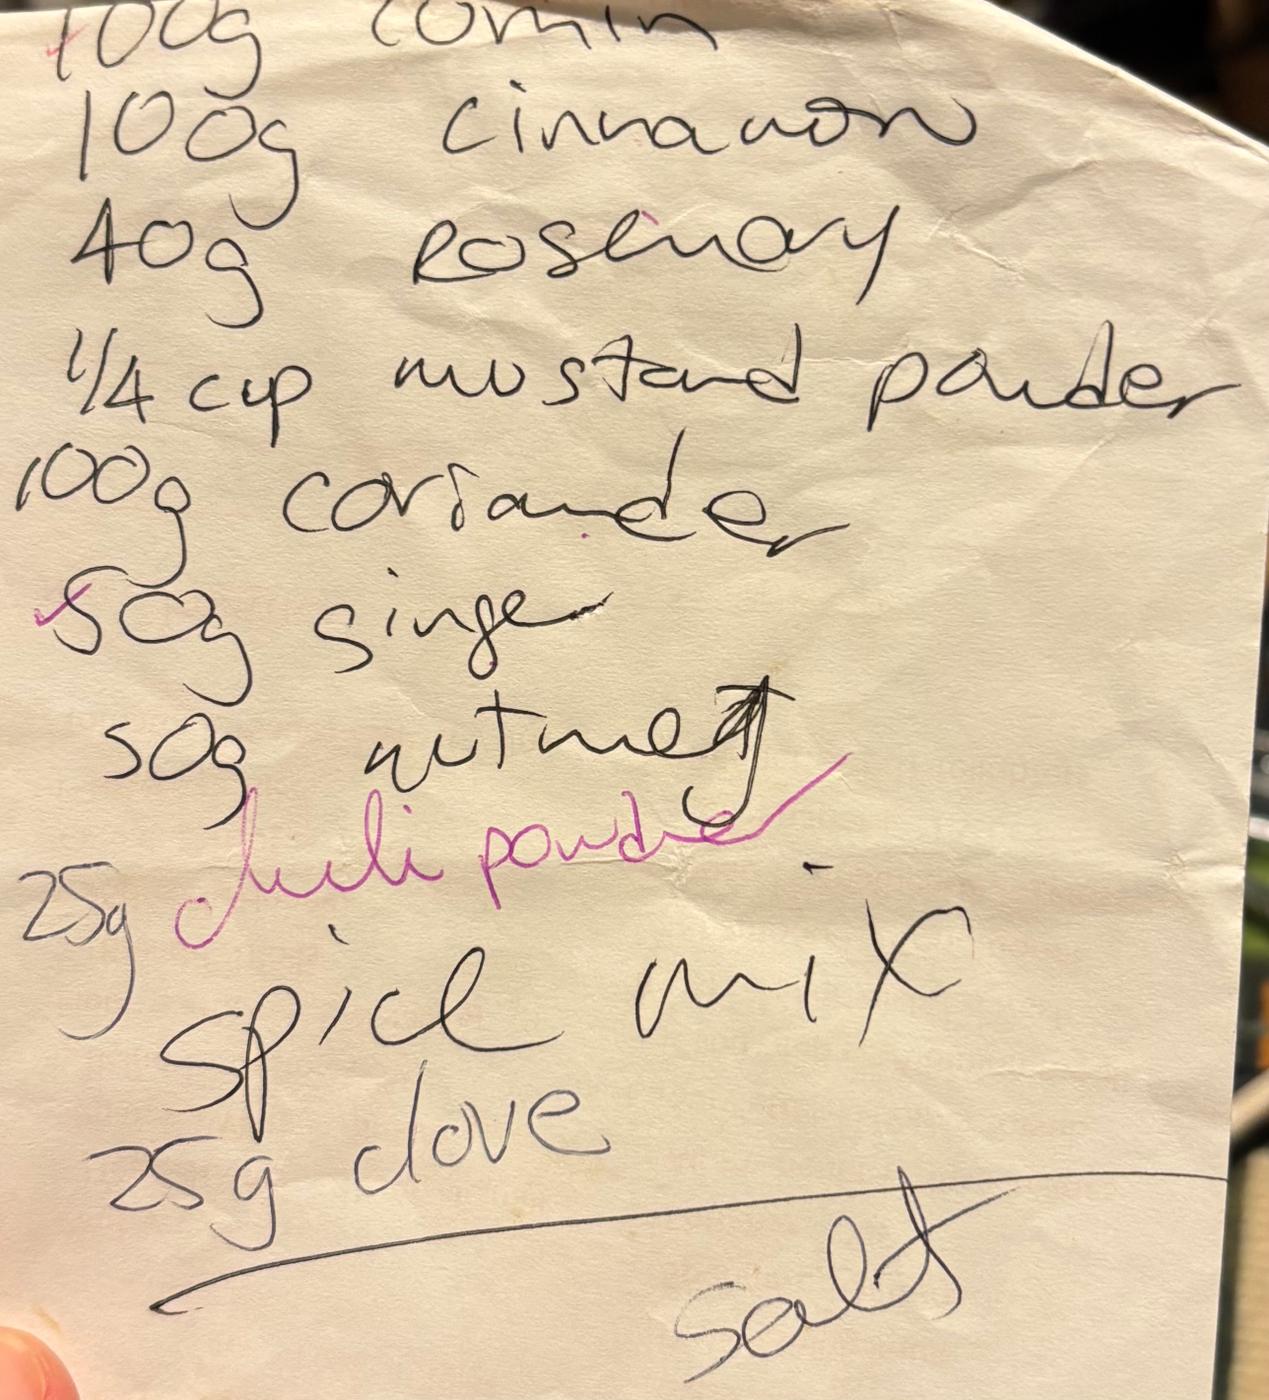 100g comin
100g cinnamon
40g Rosemary
1/4 cup mustard powder
100g coriander
50g ginger
50g nutmeg
25g chili powder
spice mix
25g clove
salt